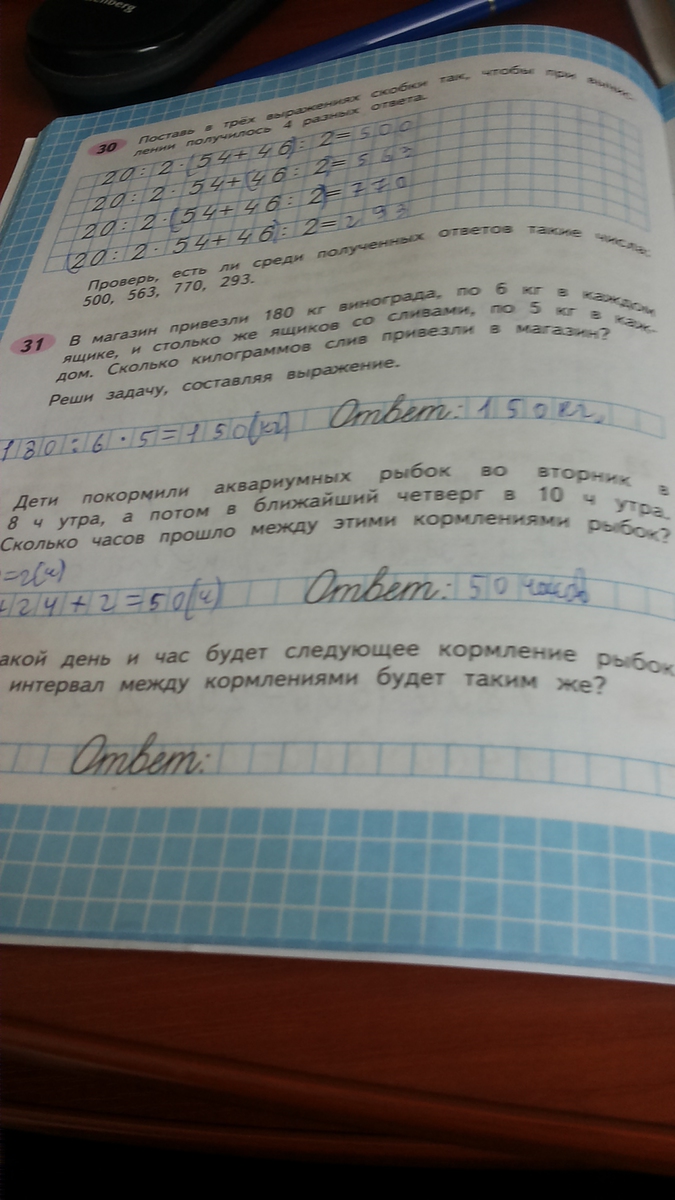 30 Поставь в трёх выражениях скобки так, чтобы при вычис-
лении получилось 4 разных ответа.
20 : 2 · (54 + 46) : 2 = 500
20 : 2 · 54 + (46 : 2) = 563
20 : 2 · (54 + 46 : 2) = 770
(20 : 2 · 54 + 46) : 2 = 293
Проверь, есть ли среди полученных ответов такие числа:
500, 563, 770, 293.
31 В магазин привезли 180 кг винограда, по 6 кг в каждом
ящике, и столько же ящиков со сливами, по 5 кг в каж-
дом. Сколько килограммов слив привезли в магазин?
Реши задачу, составляя выражение.
180 : 6 · 5 = 150 (кг) Ответ: 150 кг.
Дети покормили аквариумных рыбок во вторник в
8 ч утра, а потом в ближайший четверг в 10 ч утра.
Сколько часов прошло между этими кормлениями рыбок?
=2(ч)
+24+2=50(ч) Ответ: 50 часов
акой день и час будет следующее кормление рыбок
интервал между кормлениями будет таким же?
Ответ: